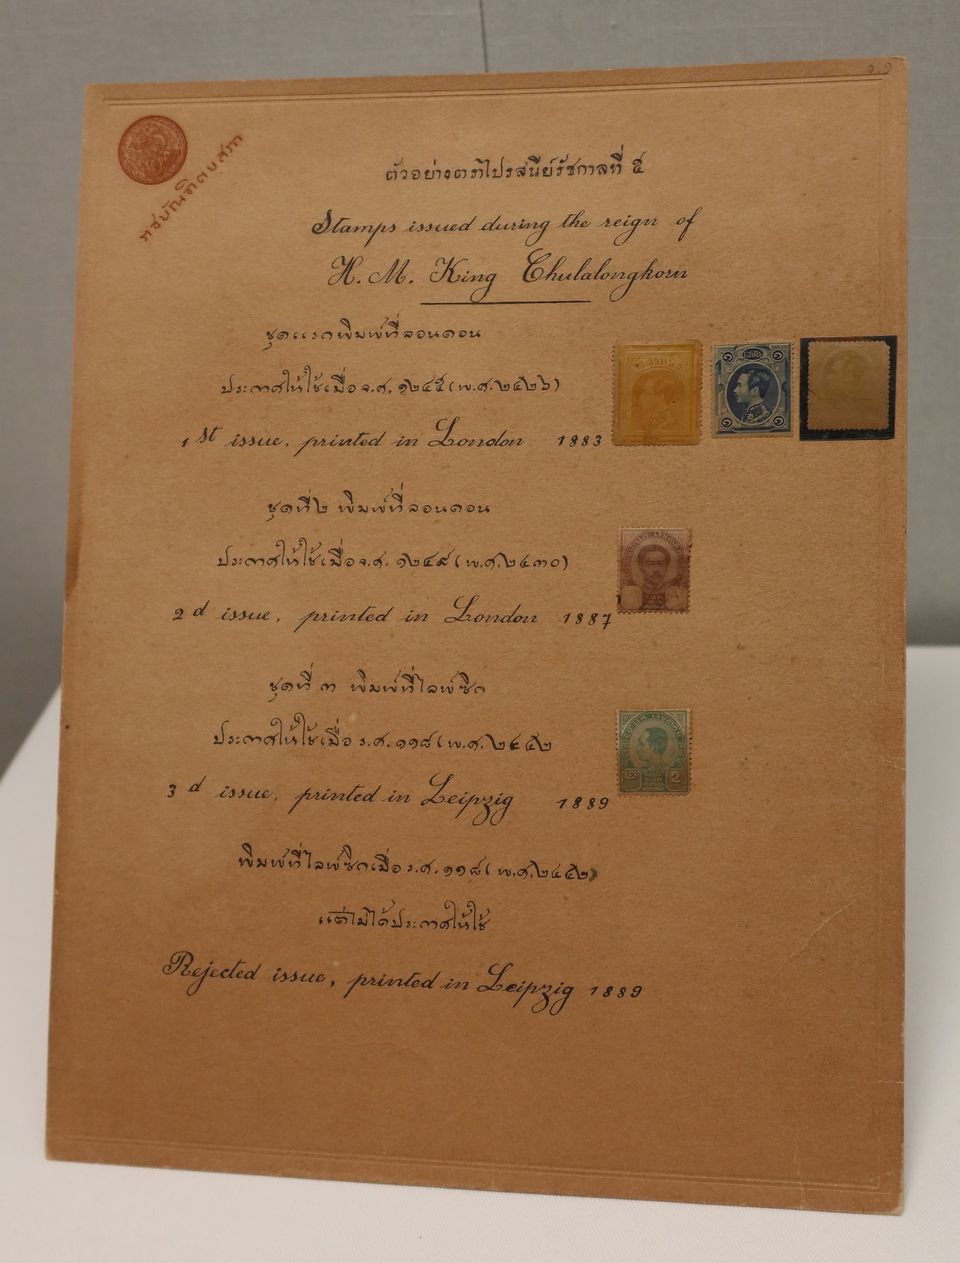 ราชบัณฑิตยสภา
ตัวอย่างตราไปรสนีย์รัชกาลที่ ๕
Stamps issued during the reign of
H. M. King Chulalongkorn
ชุดแรกพิมพ์ที่ลอนดอน
ประกาศให้ใช้เมื่อ จ.ศ. ๑๒๔๕ (พ.ศ. ๒๔๒๖)
1 st issue, printed in London 1883
ชุดที่ ๒ พิมพ์ที่ลอนดอน
ประกาศให้ใช้เมื่อ จ.ศ. ๑๒๔๙ (พ.ศ. ๒๔๓๐)
2 d issue, printed in London 1887
ชุดที่ ๓ พิมพ์ที่ไลพ์ซิก
ประกาศให้ใช้เมื่อ ร.ศ. ๑๑๘ (พ.ศ. ๒๔๔๒
2
3 d issue, printed in Leipzig 1889
พิมพ์ที่ไลพ์ซิกเมื่อ ร.ศ. ๑๑๘ (พ.ศ. ๒๔๔๒)
แต่ไม่ได้ประกาศให้ใช้
Rejected issue, printed in Leipzig 1889